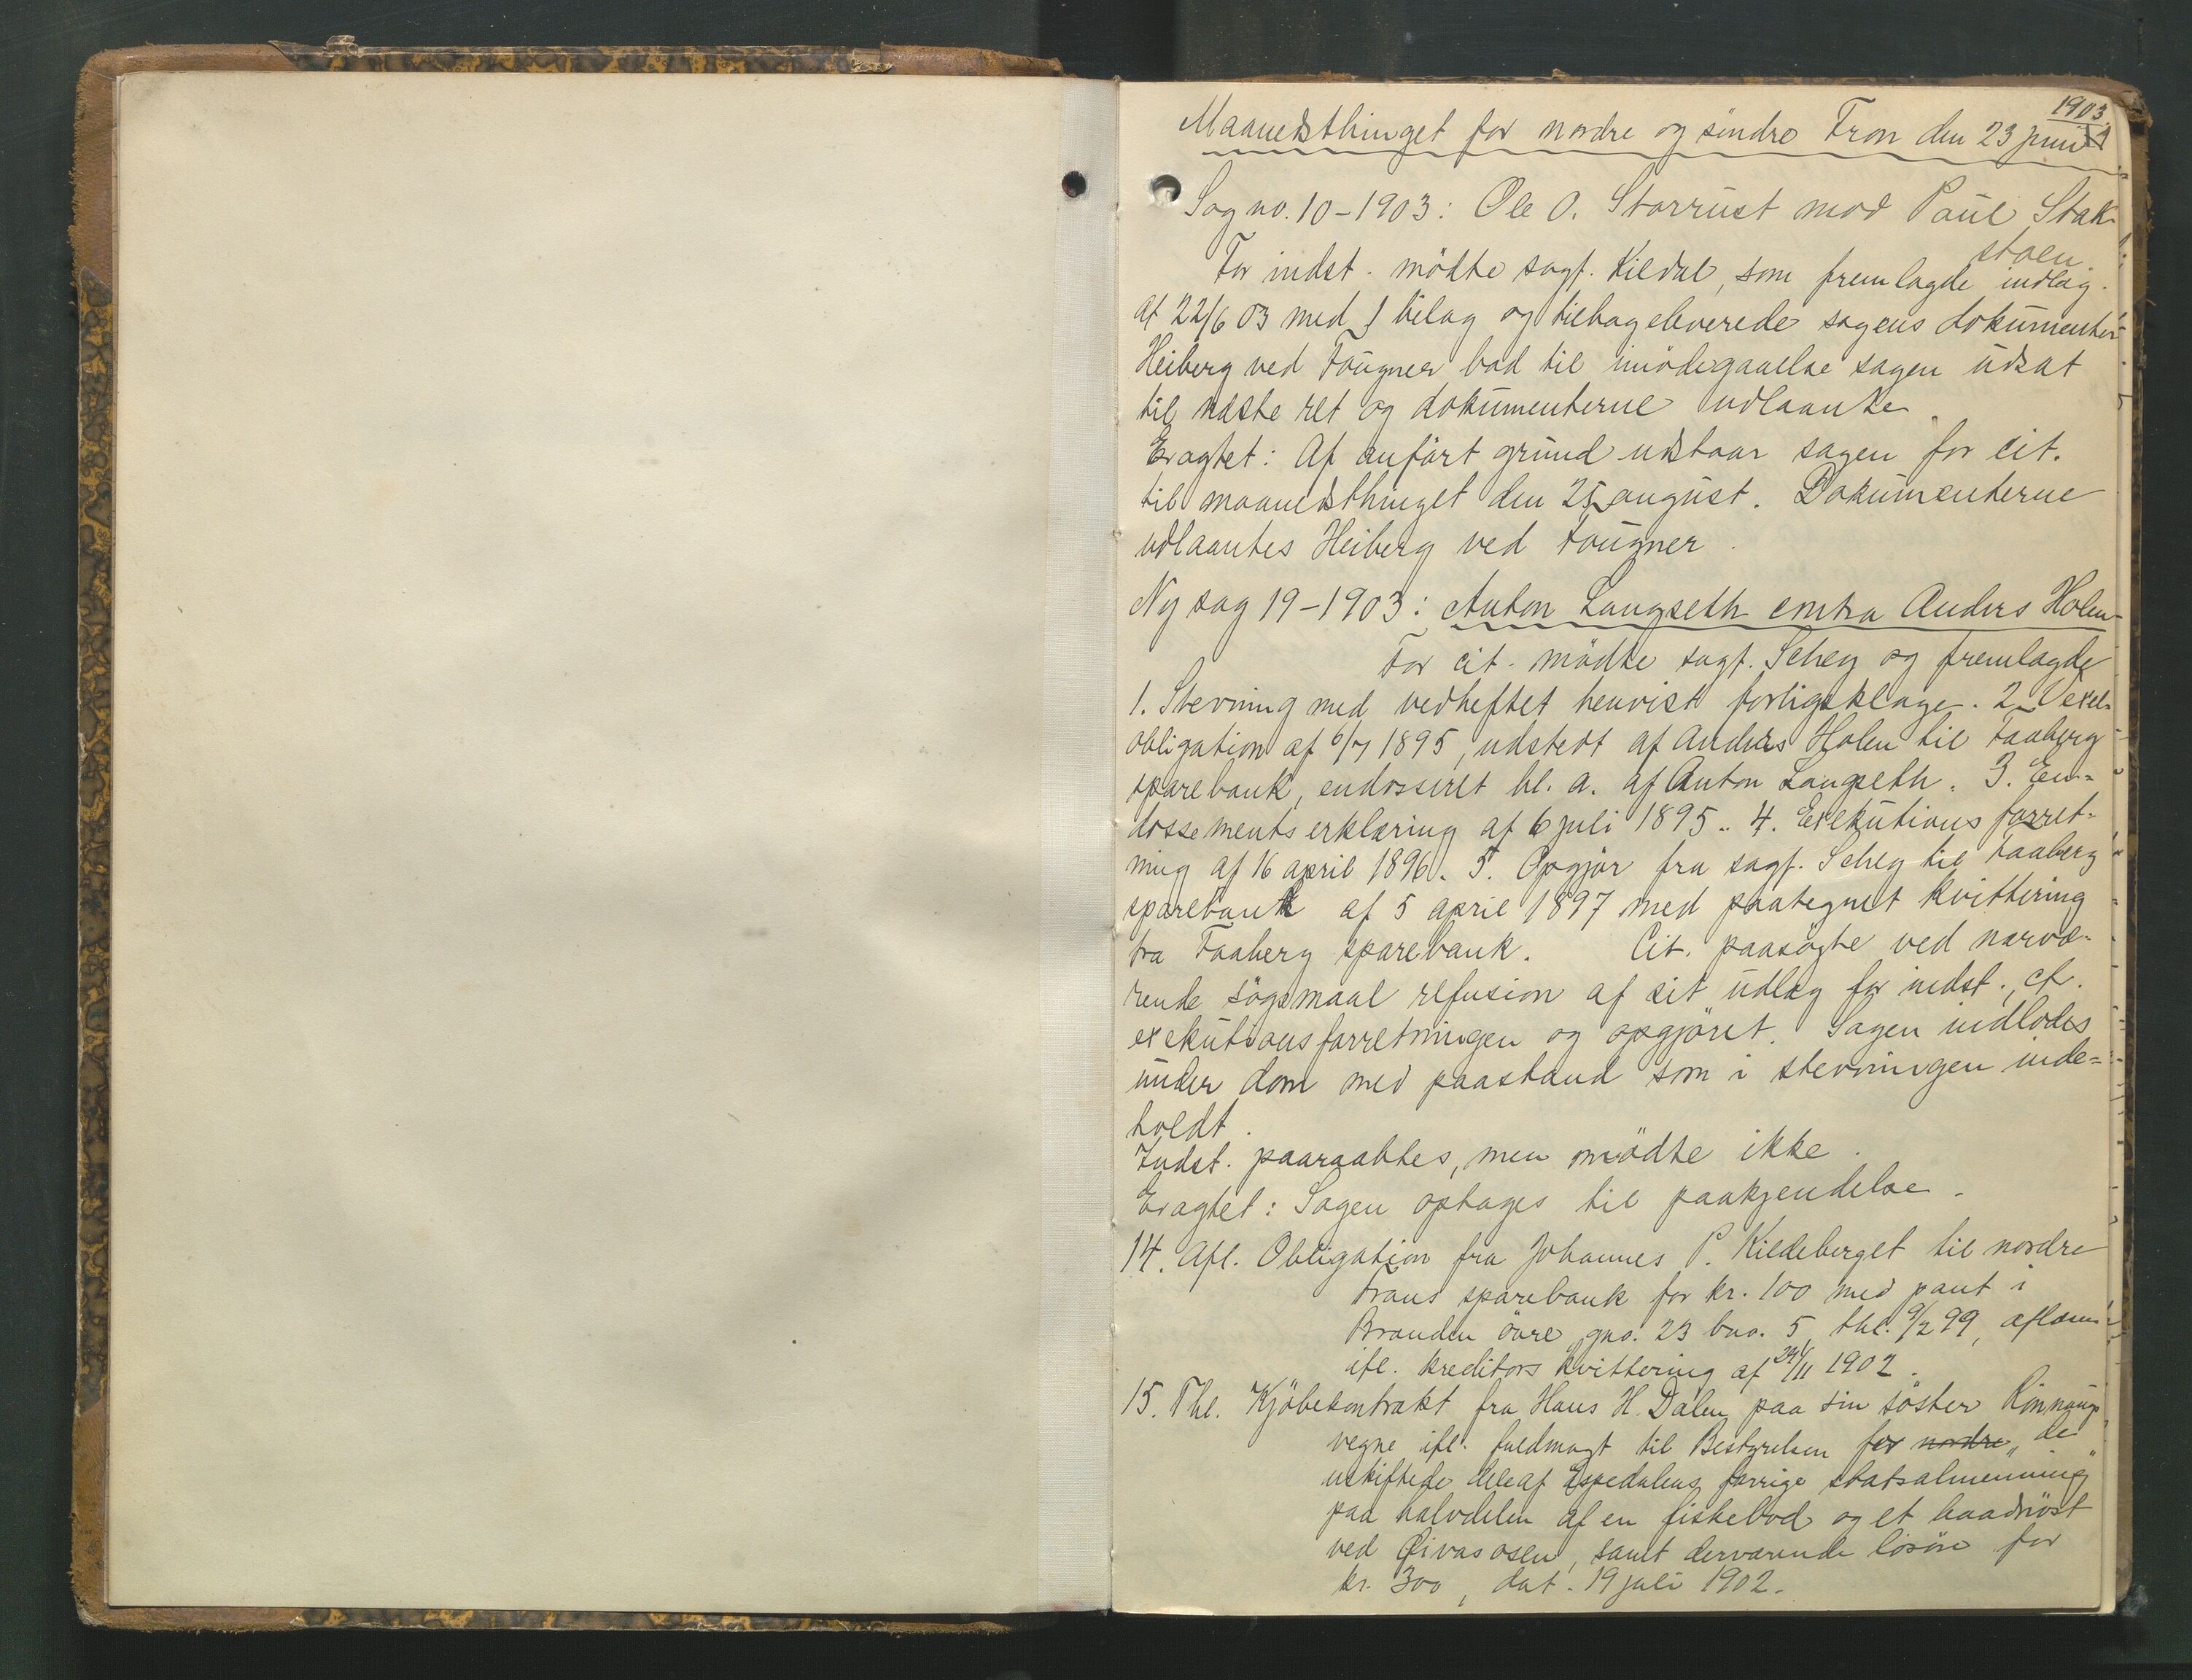 1903.
Maanedsthinget for nordre og söndre Fron den 23 juni
Sag no. 10-1903: Ole O. Storrust mod Paul Stak-
stoen.
For indst. mödte sagf. Kildal, som fremlagde indlæg
af 22/6 03 med 1 bilag og tilbageleverede sagens dokumenter
Heiberg ved Fougner bad til imödegaaelse sagen udsat
til næste ret og dokumenterne udlaante.
Eragtet: Af anfört grund udstaar sagen for cit.
til maanedsthinget den 25 august. Dokumenterne
udlaantes Heiberg ved Fougner.
Ny sag 19-1903: Anton Langseth contra Anders Holen
For cit. mödte sagf. Schey og fremlagde
1. Stevning med vedheftet henvist forligsklage. 2. Vexel-
obligation af 6/7 1895, udstedt af Anders Holen til Faaberg
sparebank, endosseret bl. a. af Anton Langseth. 3. En-
dossementserklæring af 6 juli 1895. 4. Exekutionsforret-
ning af 16 april 1896. 5. Opgjör fra sagf. Schey til Faaberg
sparebank af 5 april 1897 med paategnet kvittering
fra Faaberg sparebank. Cit. paasögte ved nærvæ-
rende sögsmaal refusion af sit udlæg for indst., cf.
exekutionsforretningen og opgjöret. Sagen indlodes
under dom med paastand som i stevningen inde-
holdt.
Indst. paaraabtes, men mödte ikke.
Eragtet: Sagen optages til paakjendelse.
14. Afl. Obligation fra Johannes P. Kildeberget til nordre
Frons sparebank for kr. 100 med pant i
Branden övre, gno. 23 bno. 5, thl. 9/2 99, aflæses
ifl. kreditors kvittering af 24/11 1902.
15. Thl. Kjöbekontrakt fra Hans H. Dalen paa sin söster Rönnaugs
vegne ifl. fuldmagt til Bestyrelsen for nordre „de
uskiftede dele af Espedalens forrige statsalmenning"
paa halvdelen af en fiskebod og et baadnöst
ved Öivasosen, samt derværende lösöre for
kr. 300, dat. 19 juli 1902.